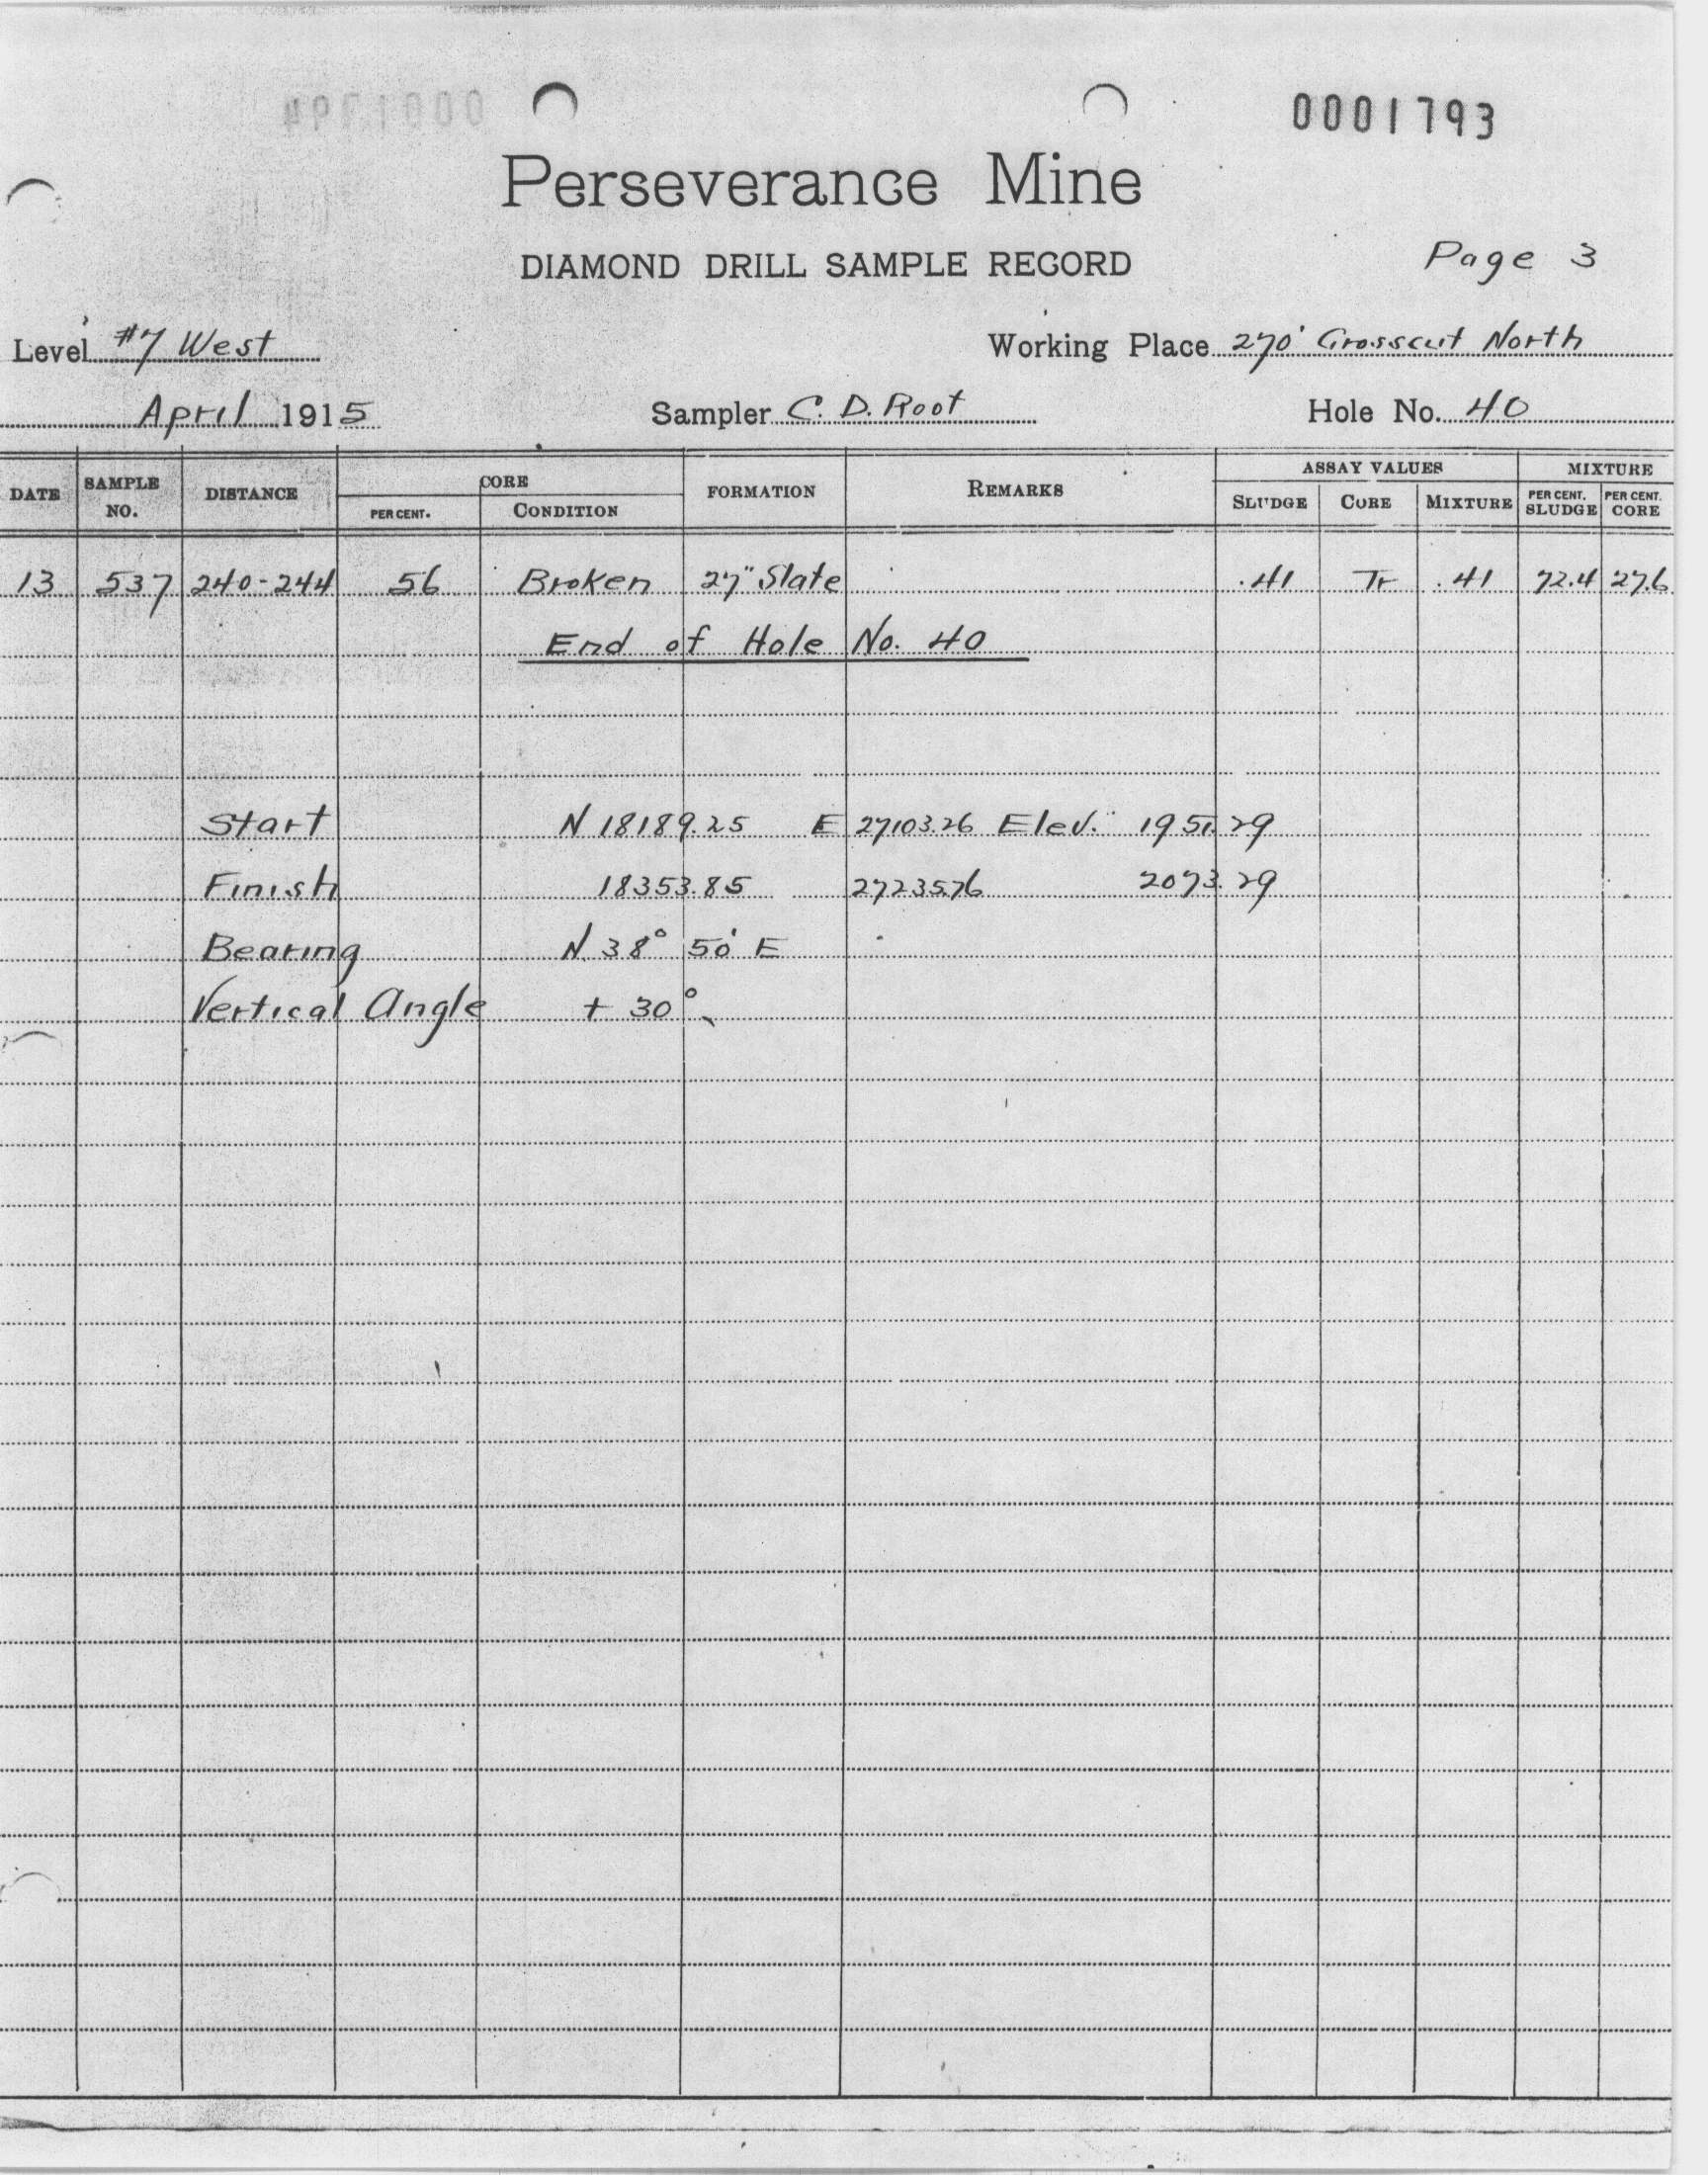 0001793
Perseverance Mine
DIAMOND DRILL SAMPLE RECORD Page 3
Level #7 West Working Place 270' Crosscut North
April 1915 Sampler C. D. Root Hole No. 40
DATE SAMPLE NO. DISTANCE CORE PER CENT. CONDITION FORMATION REMARKS ASSAY VALUES SLUDGE CORE MIXTURE MIXTURE PER CENT. SLUDGE PER CENT. CORE
13 537 240-244 56 Broken 27" Slate .41 Tr .41 72.4 27.6
End of Hole No. 40
Start N 18189.25 E 27103.26 Elev. 1951.29
Finish 18353.85 27235.76 2073.29
Bearing N 38° 50' E
Vertical Angle + 30°